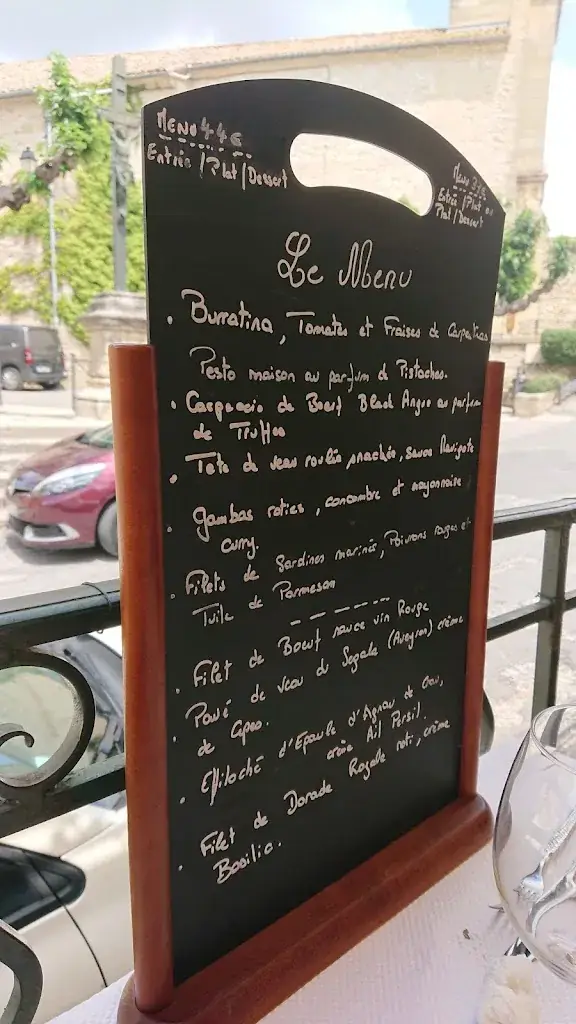 MENU 44€
Entrée / Plat / Dessert
Menu 37€
Entrée / Plat ou
Plat / Dessert
Le Menu
• Burratina, Tomates et Fraises de Carpentras
Pesto maison au parfum de Pistaches.
• Carpaccio de Boeuf Black Angus au parfum
de Truffes
• Tete de veau roulée snackée, sauce Ravigote
• Gambas roties, concombre et mayonnaise
curry.
• Filets de Sardines marinés, Poivrons rouges et
Tuile de Parmesan
• Filet de Boeuf sauce vin Rouge
• Pavé de veau du Segala (Aveyron) crème
de Cepes.
• Effiloché d'Epaule d'Agneau de
crème Ail Persil.
• Filet de Dorade Royale roti, crème
Basilic.